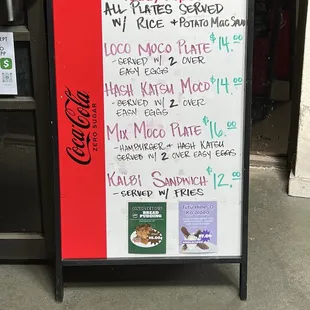 ALL PLATES SERVED
W/ RICE + POTATO MAC SALAD
LOCO MOCO PLATE $14.00
- SERVED W/ 2 OVER
EASY EGGS
HASH KATSU MOCO $14.00
- SERVED W/ 2 OVER
EASY EGGS
MIX MOCO PLATE $16.00
- HAMBURGER + HASH KATSU
SERVED W/ 2 OVER EASY EGGS
KALBI SANDWICH $12.00
- SERVED W/ FRIES
Coca-Cola
ZERO SUGAR
BREAD
PUDDING